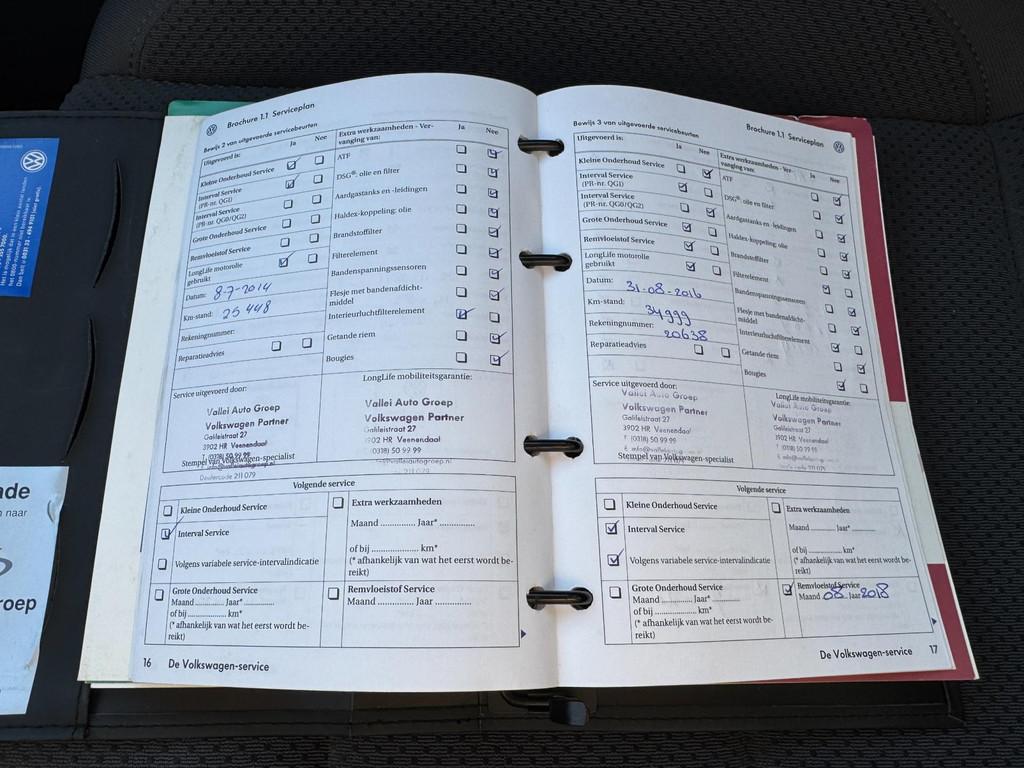 Brochure 1.1 Serviceplan
Bewijs 2 van uitgevoerde servicebeurten
Uitgevoerd is:
Ja Nee
Kleine Onderhoud Service
Interval Service
(PR-nr. QGI)
Interval Service
(PR-nr. QG0/QG2)
Grote Onderhoud Service
Remvloeistof Service
LongLife motorolie
gebruikt
Datum: 8-7-2014
Km-stand: 25 448
Rekeningnummer:
Reparatieadvies
Extra werkzaamheden - Ver-
vanging van:
Ja Nee
ATF
DSG®: olie en filter
Aardgastanks en -leidingen
Haldex-koppeling: olie
Brandstoffilter
Filterelement
Bandenspanningssensoren
Flesje met bandenafdicht-
middel
Interieurluchtfilterelement
Getande riem
Bougies
Service uitgevoerd door:
Vallei Auto Groep
Volkswagen Partner
Galileistraat 27
3902 HR Veenendaal
T. (0318) 50 99 99
Stempel van Volkswagen-specialist
Dealercode 211 079
LongLife mobiliteitsgarantie:
Vallei Auto Groep
Volkswagen Partner
Galileistraat 27
3902 HR Veenendaal
(0318) 50 99 99
211 079
Volgende service
Kleine Onderhoud Service
Interval Service
Volgens variabele service-intervalindicatie
Grote Onderhoud Service
Maand ............ Jaar* ............
of bij ............ km*
(* afhankelijk van wat het eerst wordt be-
reikt)
Extra werkzaamheden
Maand ............ Jaar* ............
of bij ............ km*
(* afhankelijk van wat het eerst wordt be-
reikt)
Remvloeistof Service
Maand ............ Jaar ............
16 De Volkswagen-service
Brochure 1.1 Serviceplan
Bewijs 3 van uitgevoerde servicebeurten
Uitgevoerd is:
Ja Nee
Kleine Onderhoud Service
Interval Service
(PR-nr. QGI)
Interval Service
(PR-nr. QG0/QG2)
Grote Onderhoud Service
Remvloeistof Service
LongLife motorolie
gebruikt
Datum: 31-08-2016
Km-stand: 34999
Rekeningnummer: 20638
Reparatieadvies
Extra werkzaamheden - Ver-
vanging van:
Ja Nee
ATF
DSG®: olie en filter
Aardgastanks en -leidingen
Haldex-koppeling: olie
Brandstoffilter
Filterelement
Bandenspanningssensoren
Flesje met bandenafdicht-
middel
Interieurluchtfilterelement
Getande riem
Bougies
Service uitgevoerd door:
Vallei Auto Groep
Volkswagen Partner
Galileistraat 27
3902 HR Veenendaal
T (0318) 50 99 99
Stempel van Volkswagen-specialist
LongLife mobiliteitsgarantie:
Vallei Auto Groep
Volkswagen Partner
Galileistraat 27
3902 HR Veenendaal
T (0318) 50 99 99
211 079
Volgende service
Kleine Onderhoud Service
Interval Service
Volgens variabele service-intervalindicatie
Grote Onderhoud Service
Maand ............ Jaar* ............
of bij ............ km*
(* afhankelijk van wat het eerst wordt be-
reikt)
Extra werkzaamheden
Maand ............ Jaar* ............
of bij ............ km*
(* afhankelijk van wat het eerst wordt be-
reikt)
Remvloeistof Service
Maand 08 Jaar 2018
De Volkswagen-service 17
naar
roep